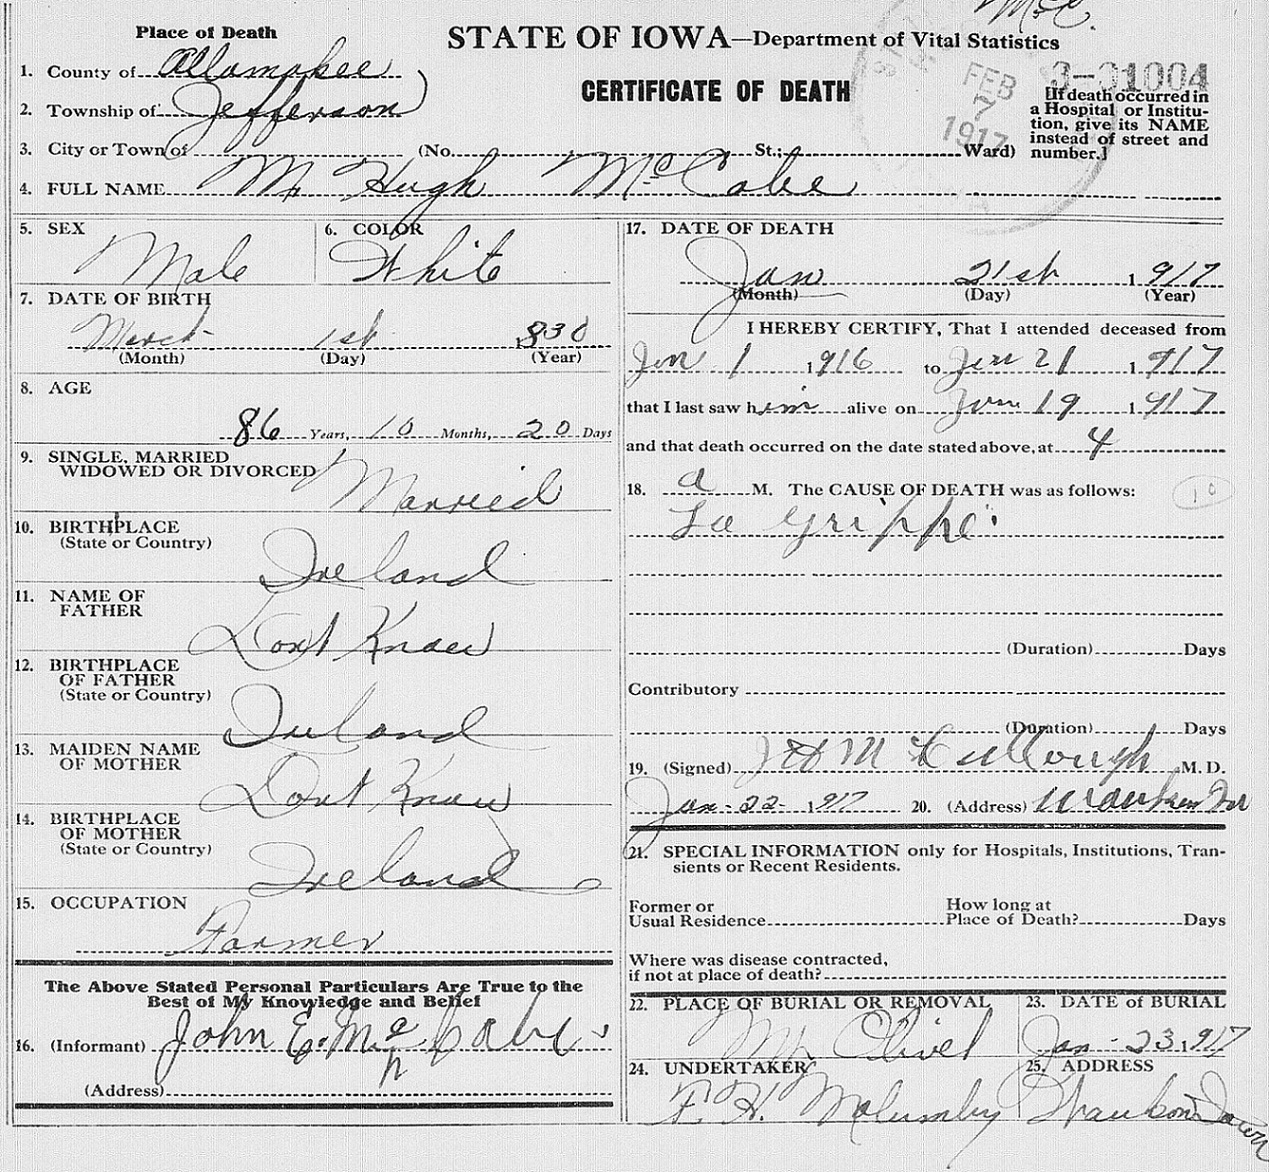 McC.
Place of Death
STATE OF IOWA—Department of Vital Statistics
1. County of Allamakee
CERTIFICATE OF DEATH
FEB 7 1917
3-01004
2. Township of Jefferson
[If death occurred in a Hospital or Institution, give its NAME instead of street and number.]
3. City or Town of (No. St.; Ward)
4. FULL NAME Mr Hugh McCabe
5. SEX Male
6. COLOR White
7. DATE OF BIRTH
March 1st 1830
(Month) (Day) (Year)
8. AGE
86 Years, 10 Months, 20 Days
9. SINGLE, MARRIED
WIDOWED OR DIVORCED Married
10. BIRTHPLACE
(State or Country) Ireland
11. NAME OF
FATHER Dont Know
12. BIRTHPLACE
OF FATHER
(State or Country) Ireland
13. MAIDEN NAME
OF MOTHER Dont Know
14. BIRTHPLACE
OF MOTHER
(State or Country) Ireland
15. OCCUPATION
Farmer
The Above Stated Personal Particulars Are True to the
Best of My Knowledge and Belief
16. (Informant) John E. McCabe
(Address)
17. DATE OF DEATH
Jan 21st 1917
(Month) (Day) (Year)
I HEREBY CERTIFY, That I attended deceased from
Jan 1 1916 to Jan 21 1917
that I last saw him alive on Jan 19 1917
and that death occurred on the date stated above, at 4
18. a M. The CAUSE OF DEATH was as follows:
10
La Grippe
(Duration) Days
Contributory
(Duration) Days
19. (Signed) McCullough M.D.
Jan-22-1917 20. (Address) Waukon
21. SPECIAL INFORMATION only for Hospitals, Institutions, Tran-
sients or Recent Residents.
Former or How long at
Usual Residence Place of Death? Days
Where was disease contracted,
if not at place of death?
22. PLACE OF BURIAL OR REMOVAL
Mt Olivet
23. DATE of BURIAL
Jan-23-1917
24. UNDERTAKER
F. H. Molumby
25. ADDRESS
Waukon Iowa